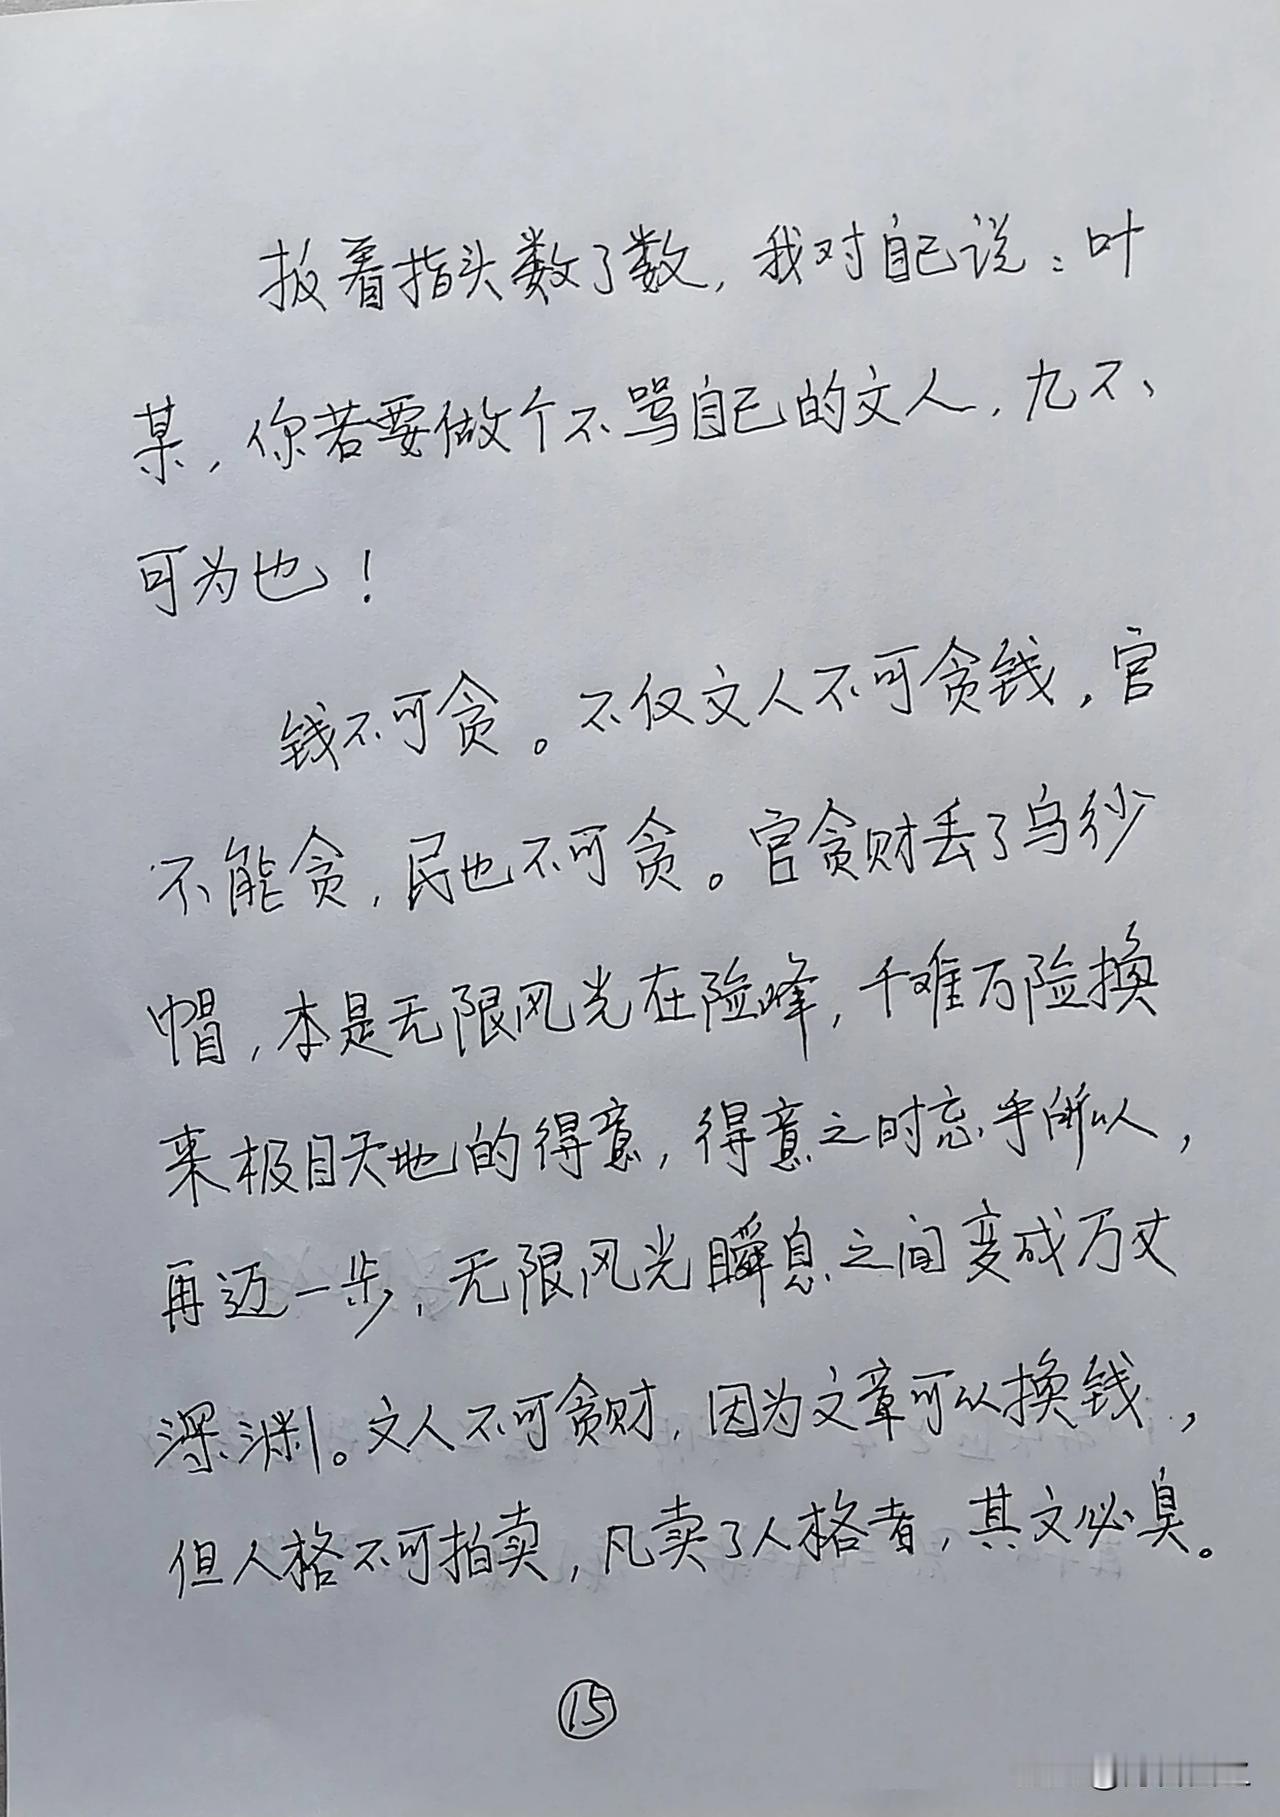 扳着指头数了数，我对自己说：叶
某，你若要做个不骂自己的文人，九不
可为也！
钱不可贪。不仅文人不可贪钱，官
不能贪，民也不可贪。官贪财丢了乌纱
帽，本是无限风光在险峰，千难万险换
来极目天地的得意，得意之时忘乎所以，
再迈一步，无限风光瞬息之间变成万丈
深渊。文人不可贪财，因为文章可以换钱，
但人格不可拍卖，凡卖了人格者，其文必臭。
⑮